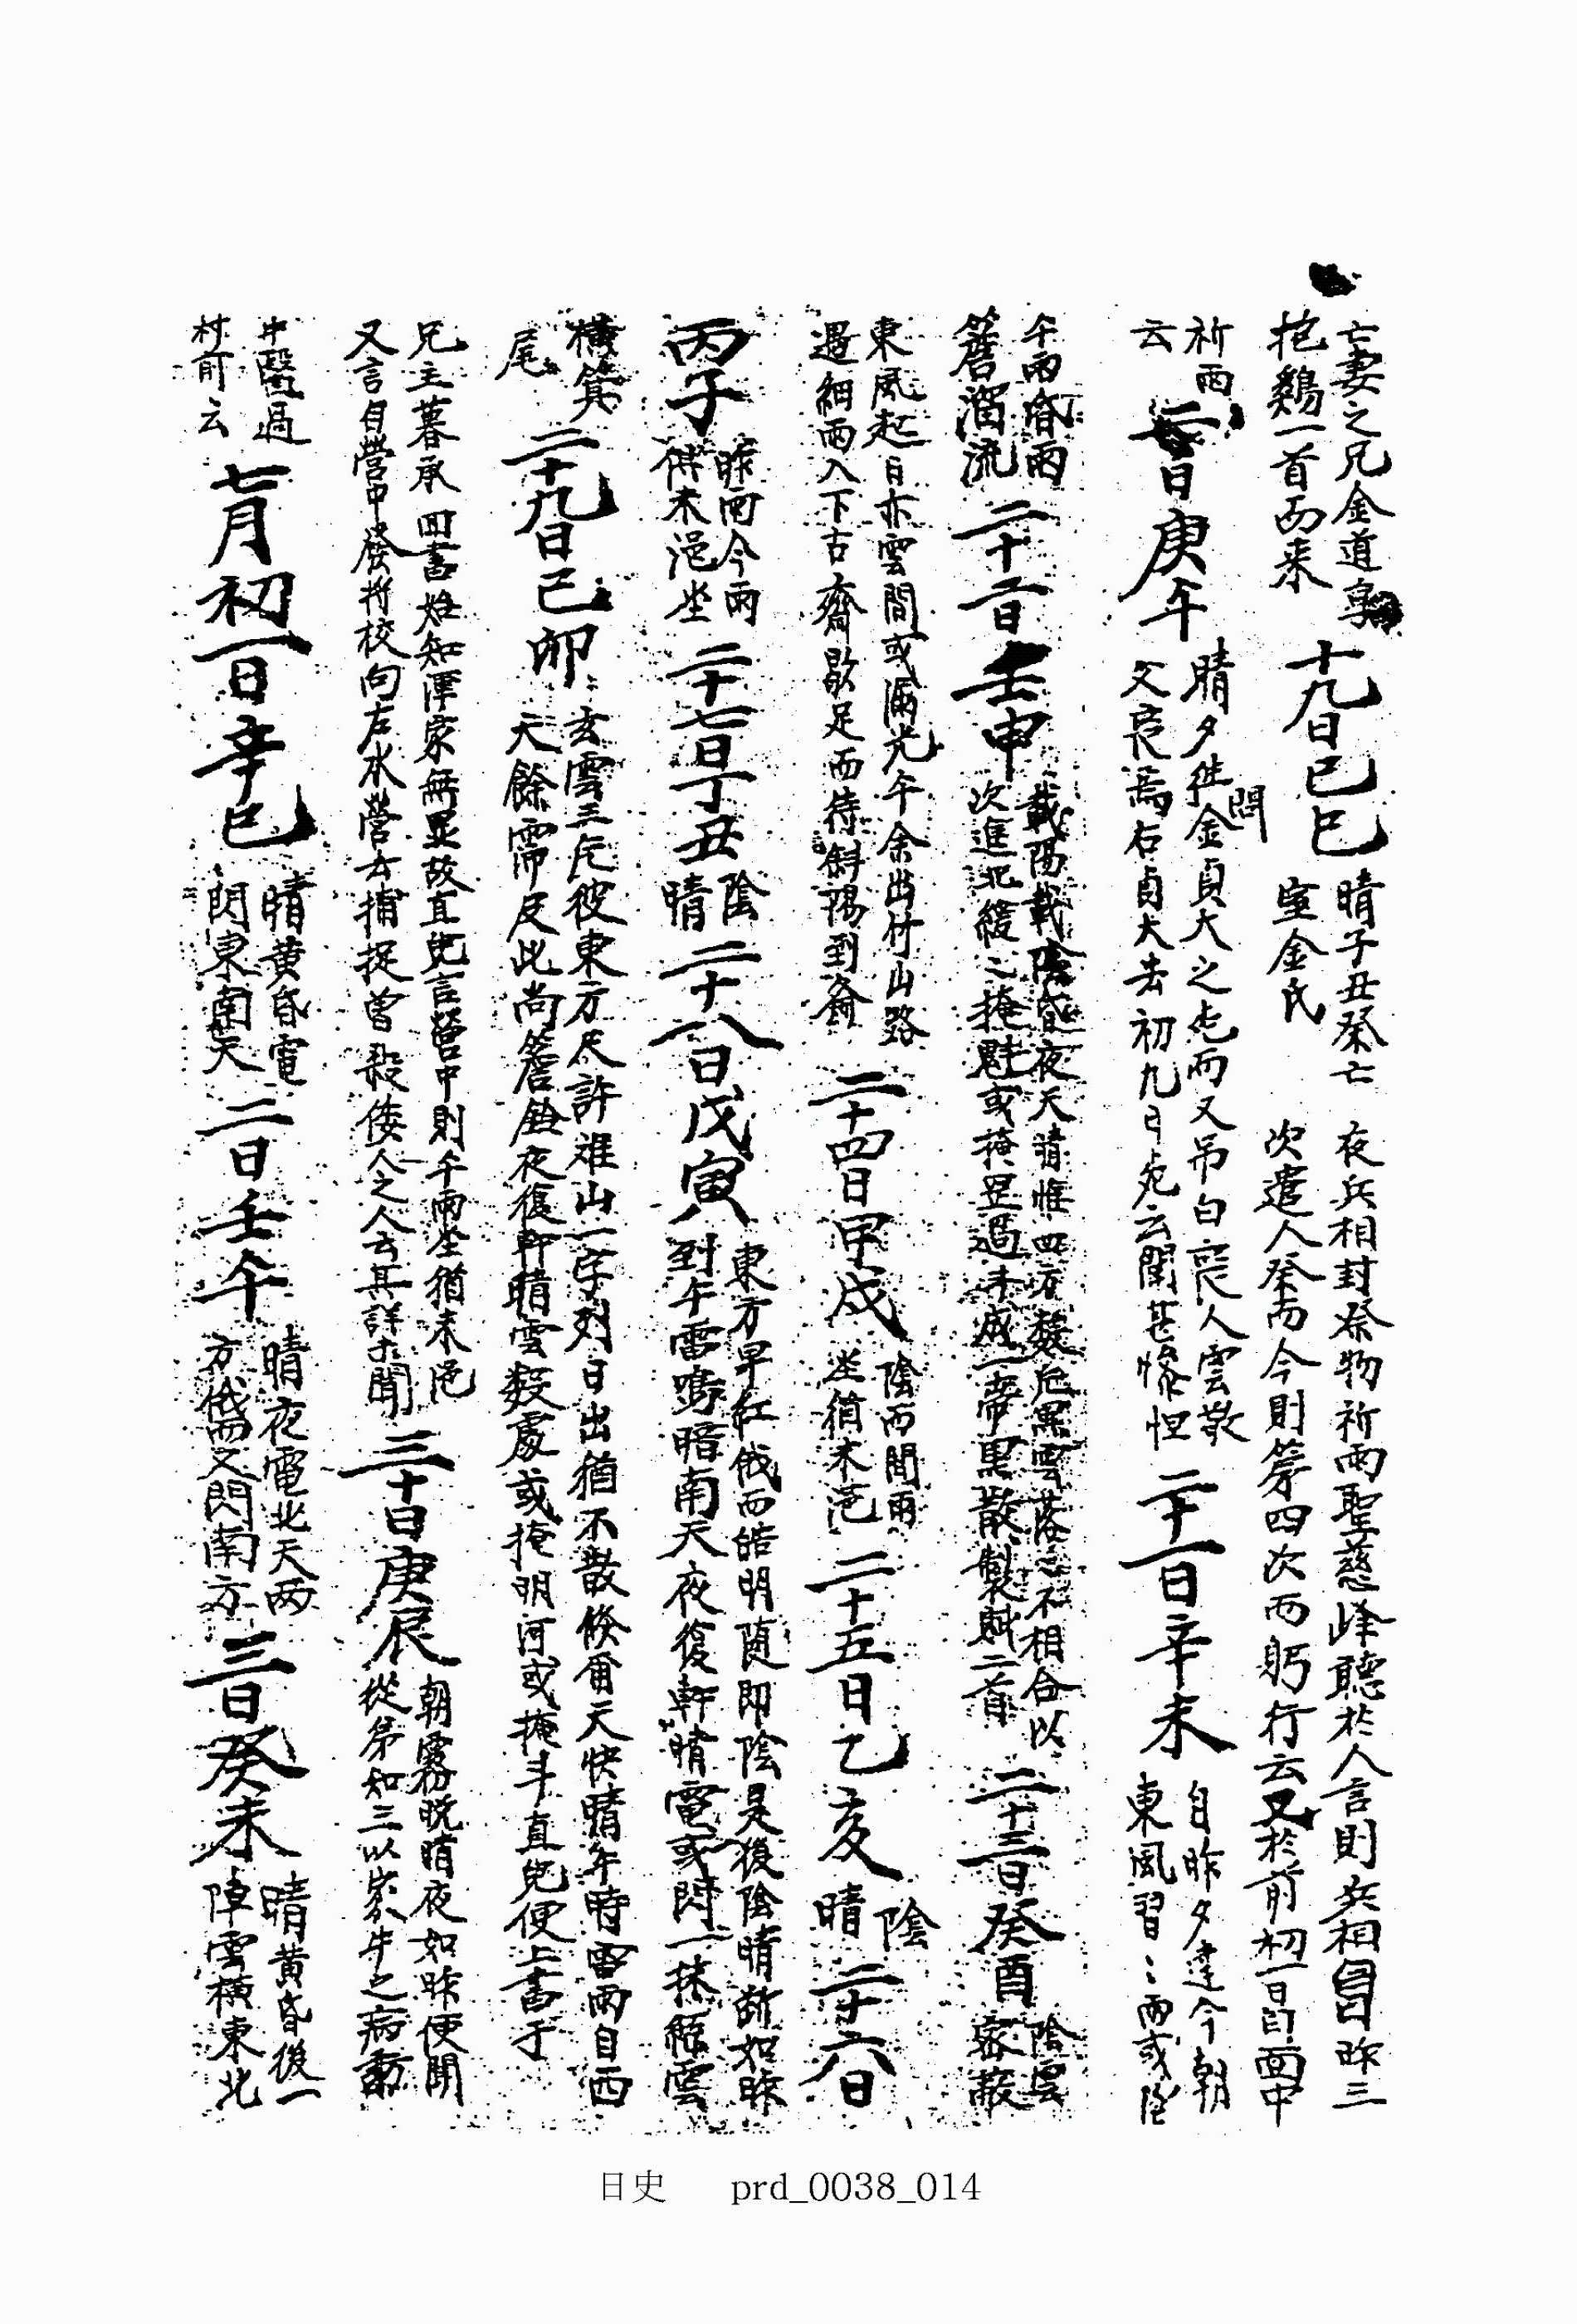 亡妻之兄金道亨
抱鷄一首而來
十九日己巳
晴子丑祭亡
室金氏
夜兵相封祭物祈雨聖慈峰聽於人言則兵相自昨三
次遣人祭而今則第四次而躬行云又於前初一日面中
祈雨
云
二十日庚午
晴夕往金貞大之而又吊白喪人雲敬
問
父喪焉右貞大去初九日死云聞甚慘怛
二十一日辛未
自昨夕達今朝
東風習〻雨或
午雨昏雨
簷溜流
二十二日壬申
載陽載陰昏夜天晴惟四方數厄黑雲落〻不相合以
次進北緩〻掩魁或掩昱過未成一帝黑散製賦二首
二十三日癸酉
陰雲
密蔽
東風起日亦雲間或漏光午余出竹山路
遇細雨入下古齋歇足而待斜陽到齋
二十四日甲戌
陰而間雨
坐猶未浥
二十五日乙亥
陰
晴
二十六日
丙子
昨雨今雨
俱未浥坐
二十七日丁丑
陰
晴
二十八日戊寅
東方早紅俄而皓明随即陰是後陰晴斷如昨
到午雷鳴暗南天夜復軒晴電或閃一抹纖雲
橫箕
尾
二十九日己卯
玄雲三疋彼東方尺許雉山一字列日出猶不散倏爾天快晴午時雷雨自西
天餘霈及此尚簷鉛夜復軒晴雲數處或掩明河或掩斗直兒便上書于
兄主暮承回書始知渾家無恙故直兒言營中則午雨坐猶未浥
又言自營中發將校向左水營去捕捉曾殺倭人之人去其詳未聞
三十日庚辰
朝霧晩晴夜如昨便聞
從弟知三以家牛之病
牛醫過
村前云
七月初一日辛巳
晴黃昏電
閃東南天
二日壬午
晴夜電北天兩
方俄而又閃南方
三日癸未
晴黃昏後一
陣雲橫東北
日史 prd_0038_014